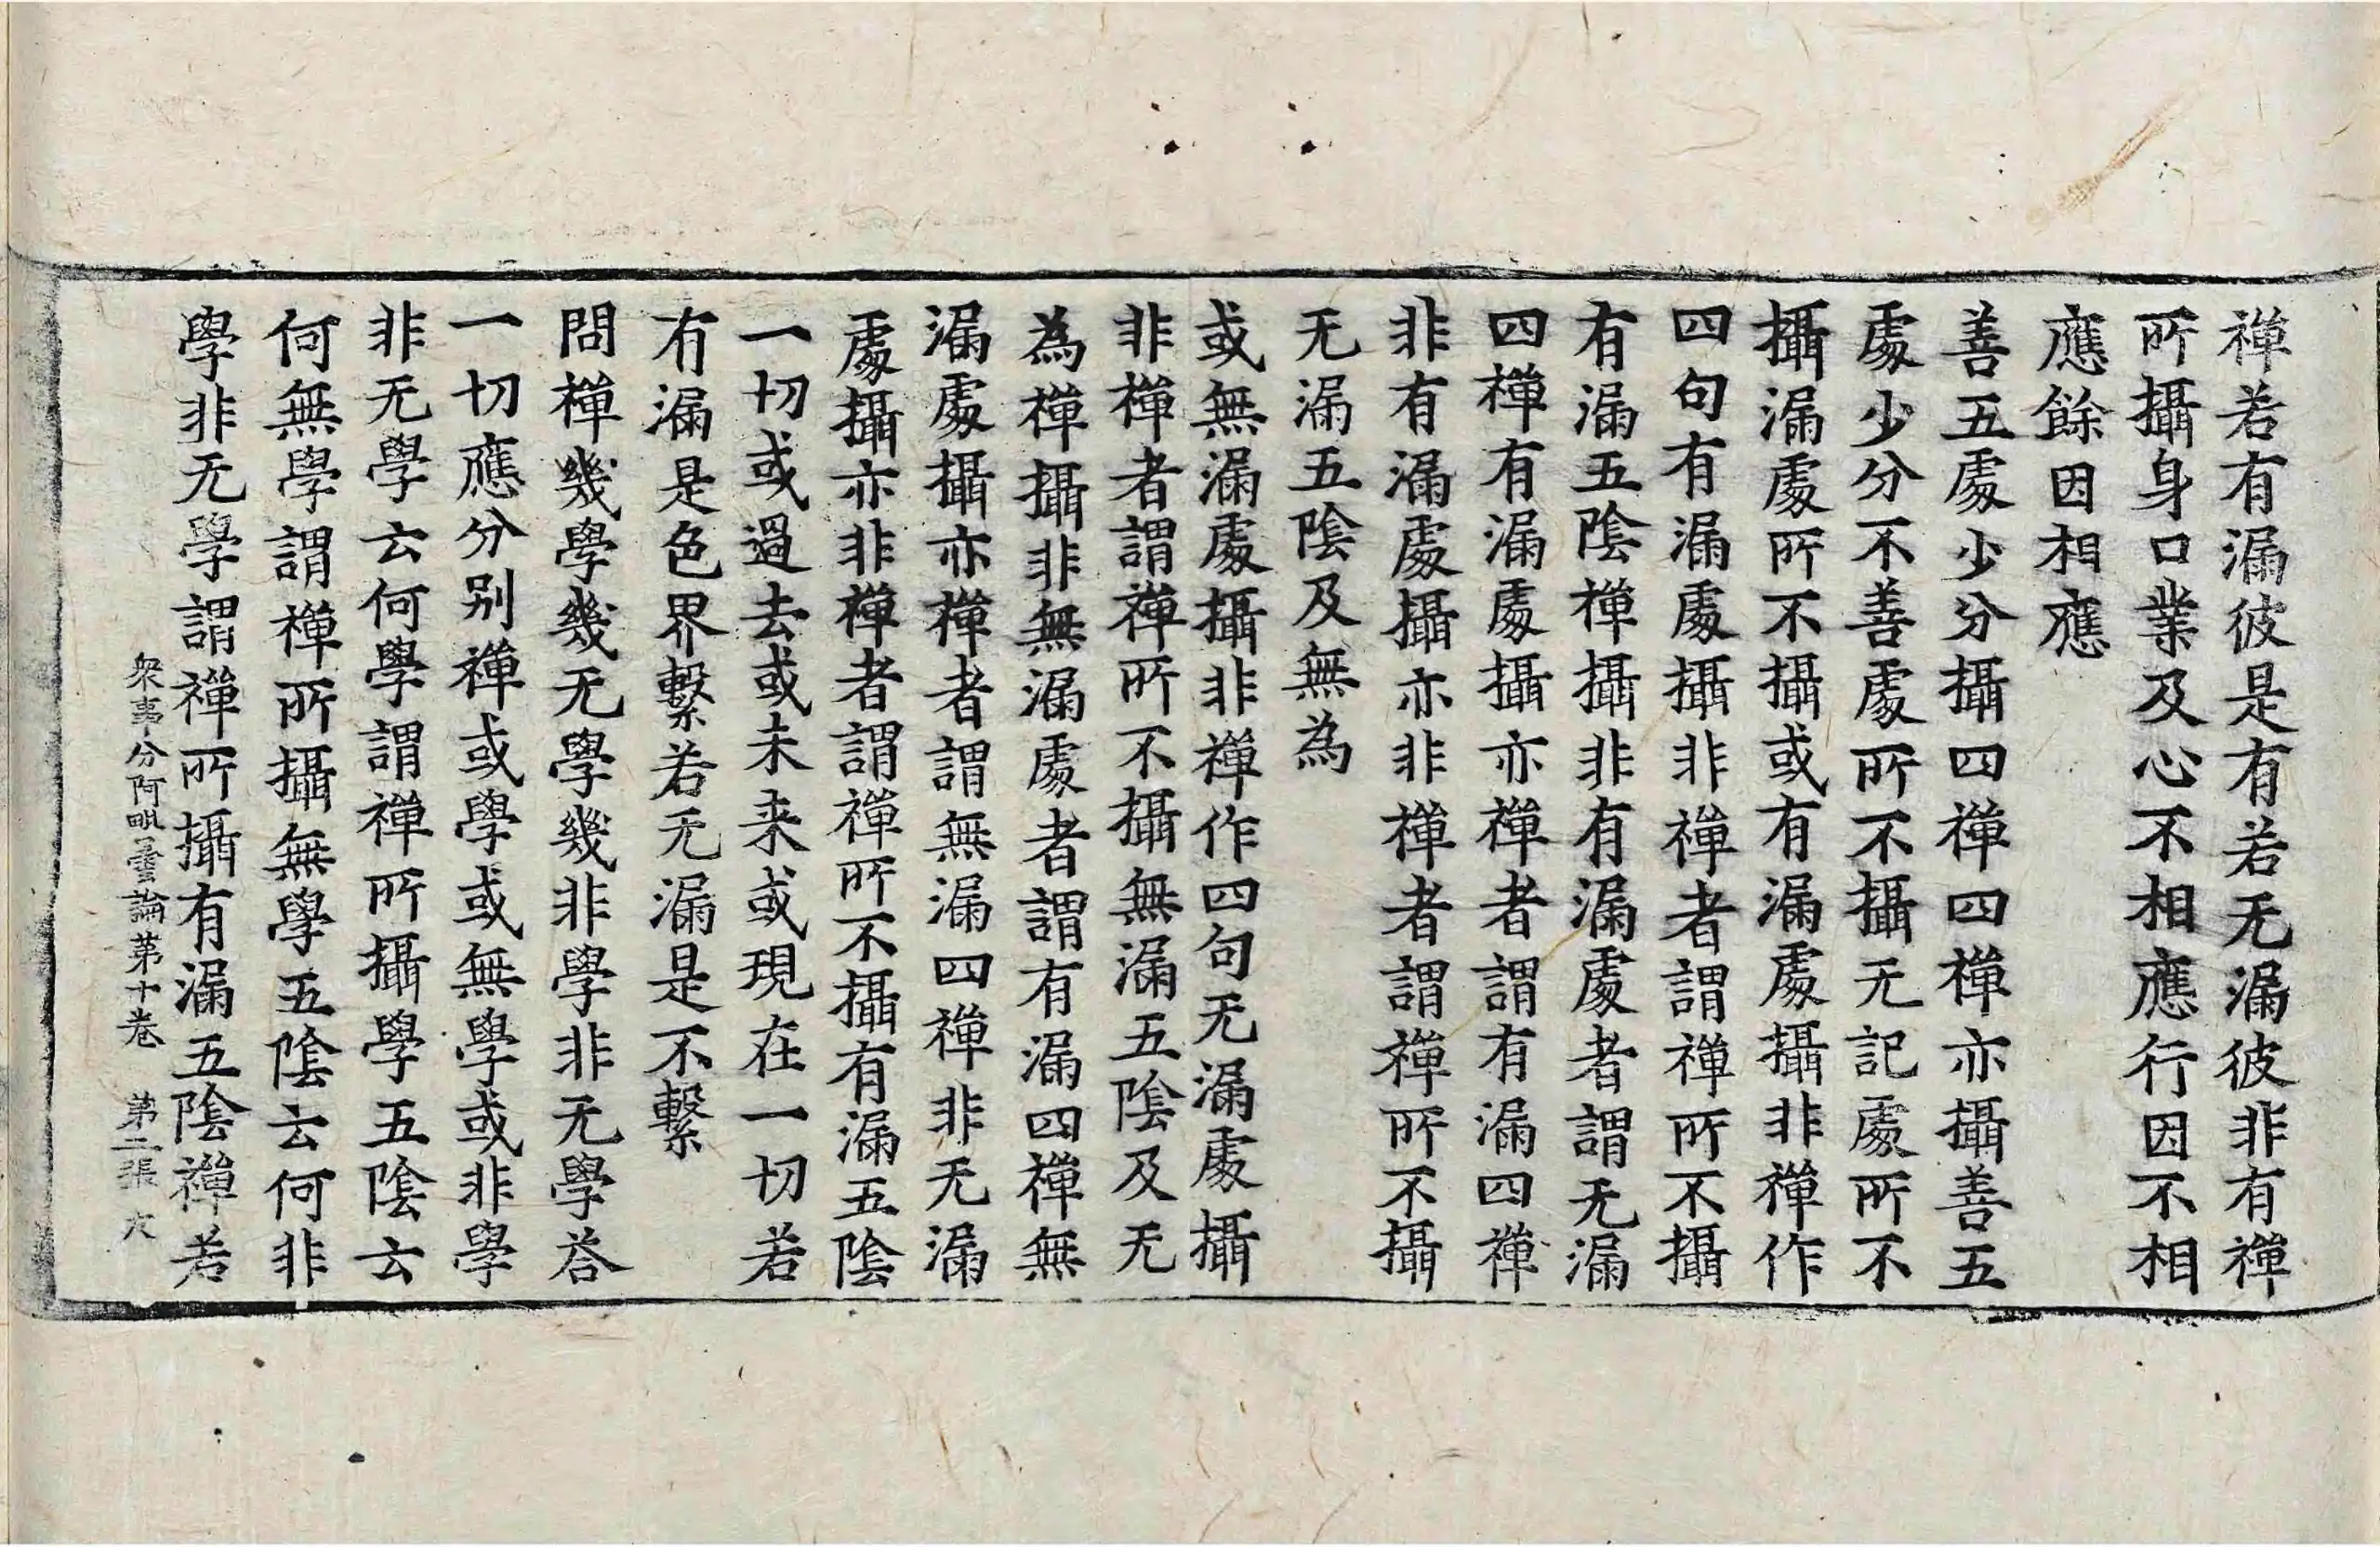 禅若有漏彼是有若无漏彼非有禅
所攝身口業及心不相應行因不相
應餘因相應
善五處少分攝四禅四禅亦攝善五
處少分不善處所不攝无記處所不
攝漏處所不攝或有漏處攝非禅作
四句有漏處攝非禅者謂禅所不攝
有漏五陰禅攝非有漏處者謂无漏
四禅有漏處攝亦禅者謂有漏四禅
非有漏處攝亦非禅者謂禅所不攝
无漏五陰及無為
或無漏處攝非禅作四句无漏處攝
非禅者謂禅所不攝無漏五陰及无
為禅攝非無漏處者謂有漏四禅無
漏處攝亦禅者謂無漏四禅非无漏
處攝亦非禅者謂禅所不攝有漏五陰
一切或過去或未来或現在一切若
有漏是色界繫若无漏是不繫
問禅幾學幾无學幾非學非无學荅
一切應分别禅或學或無學或非學
非无學云何學謂禅所攝學五陰云
何無學謂禅所攝無學五陰云何非
學非无學謂禅所攝有漏五陰禅若
衆事分阿毗曇論第十卷　第二張